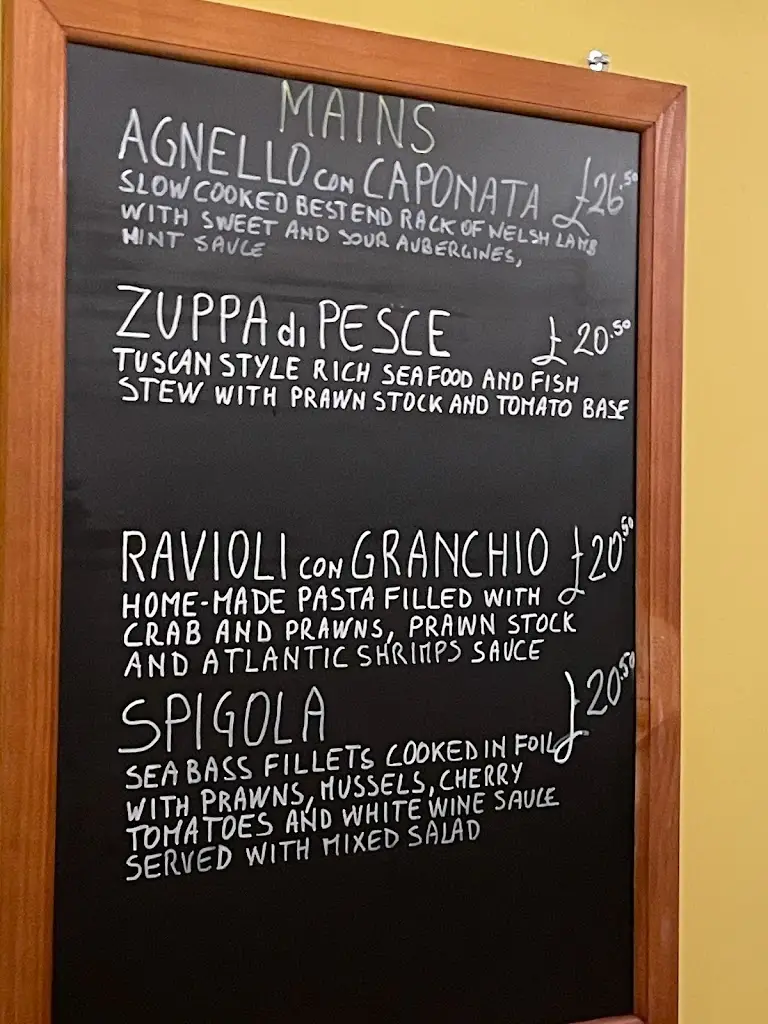 MAINS
AGNELLO con CAPONATA £26.50
SLOW COOKED BEST END RACK OF WELSH LAMB
WITH SWEET AND SOUR AUBERGINES,
MINT SAUCE
ZUPPA di PESCE £20.50
TUSCAN STYLE RICH SEAFOOD AND FISH
STEW WITH PRAWN STOCK AND TOMATO BASE
RAVIOLI CON GRANCHIO £20.50
HOME-MADE PASTA FILLED WITH
CRAB AND PRAWNS, PRAWN STOCK
AND ATLANTIC SHRIMPS SAUCE
SPIGOLA £20.50
SEA BASS FILLETS COOKED IN FOIL
WITH PRAWNS, MUSSELS, CHERRY
TOMATOES AND WHITE WINE SAUCE
SERVED WITH MIXED SALAD